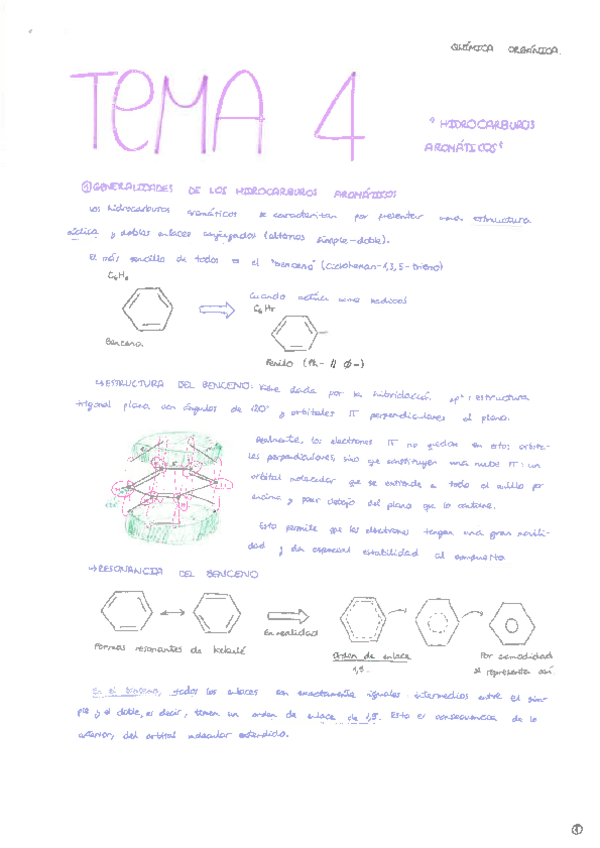 QUÍMICA ORGÁNICA.
TEMA 4
"HIDROCARBUROS
AROMÁTICOS"
① GENERALIDADES DE LOS HIDROCARBUROS AROMÁTICOS
Los hidrocarburos aromáticos se caracterizan por presentar una estructura
cíclica y dobles enlaces conjugados (alternos simple-doble).
El más sencillo de todos es el "benceno" (ciclohexan-1,3,5-trieno)
C6H6
Cuando actúa como radical
C6H5
Benceno.
Fenilo (Ph- // Ø-)
↳ESTRUCTURA DEL BENCENO: Viene dada por la hibridación sp²: estructura
trigonal plana con ángulos de 120° y orbitales π perpendiculares al plano.
Realmente, los electrones π no quedan en estos orbita-
les perpendiculares, sino que constituyen una nube π: un
orbital molecular que se extiende a todo el anillo por
encima y por debajo del plano que lo contiene.
Esto permite que los electrones tengan una gran movili-
dad y da especial estabilidad al compuesto
↳RESONANCIA DEL BENCENO
En realidad
Formas resonantes de Kekulé
Orden de enlace
1,5.
Por comodidad
se representa así.
En el benceno, todos los enlaces son exactamente iguales: intermedios entre el sim-
ple y el doble, es decir, tienen un orden de enlace de 1,5. Esto es consecuencia de lo
anterior, del orbital molecular extendido.
①